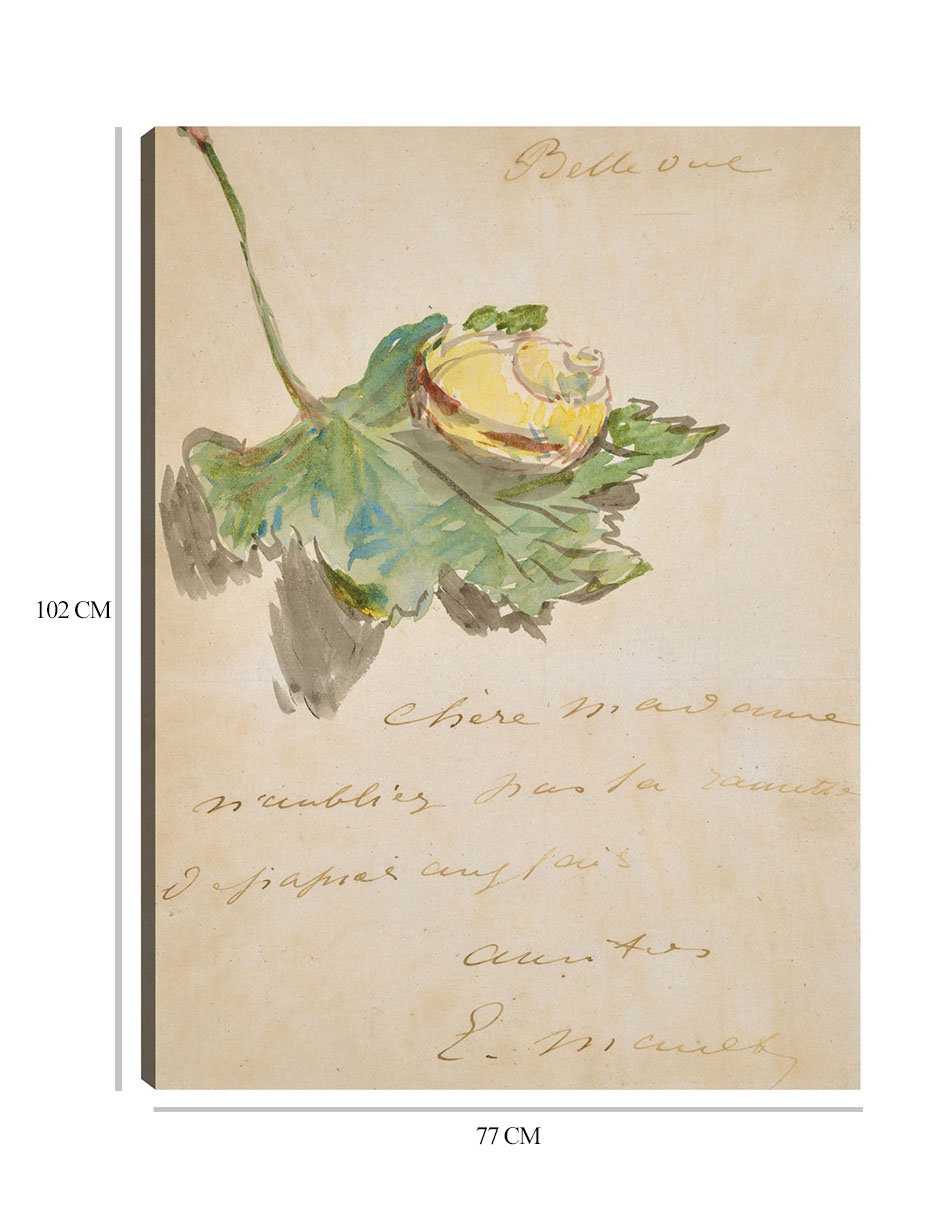 Bellevue
chère madame
n'oubliez pas la ramette
de papier anglais
amitiés
E. Manet
102 CM
77 CM